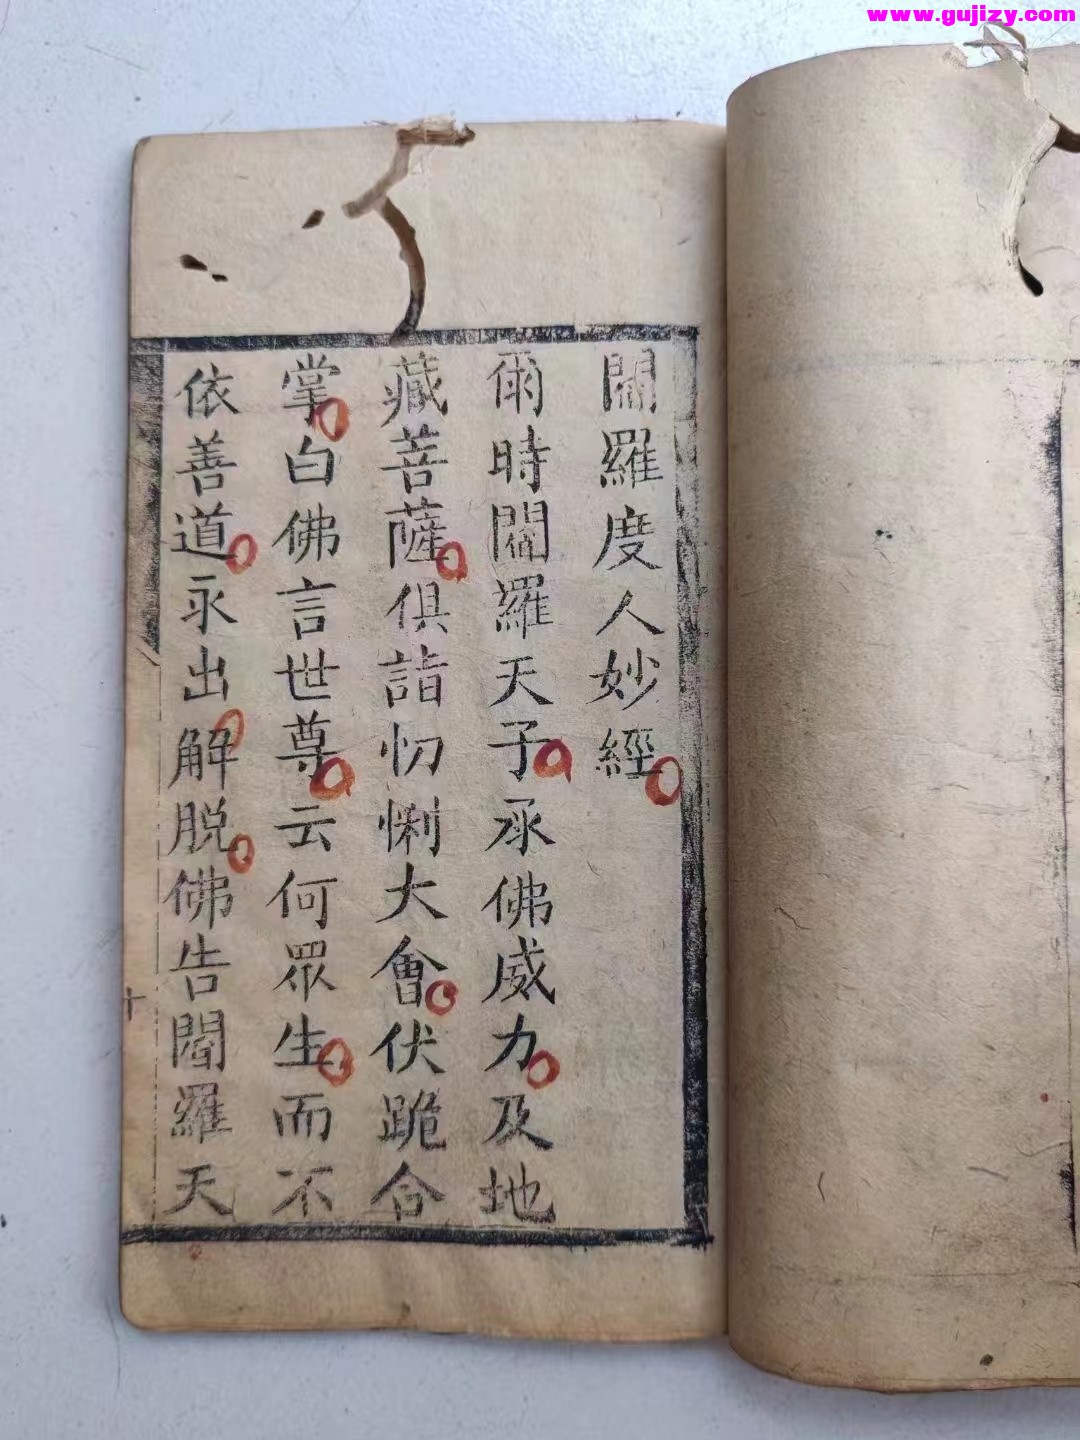 www.gujizy.com
閻羅度人妙經
爾時閻羅天子承佛威力及地
藏菩薩俱詣忉悧大會伏跪合
掌白佛言世尊云何眾生而不
依善道永出解脱佛告閻羅天